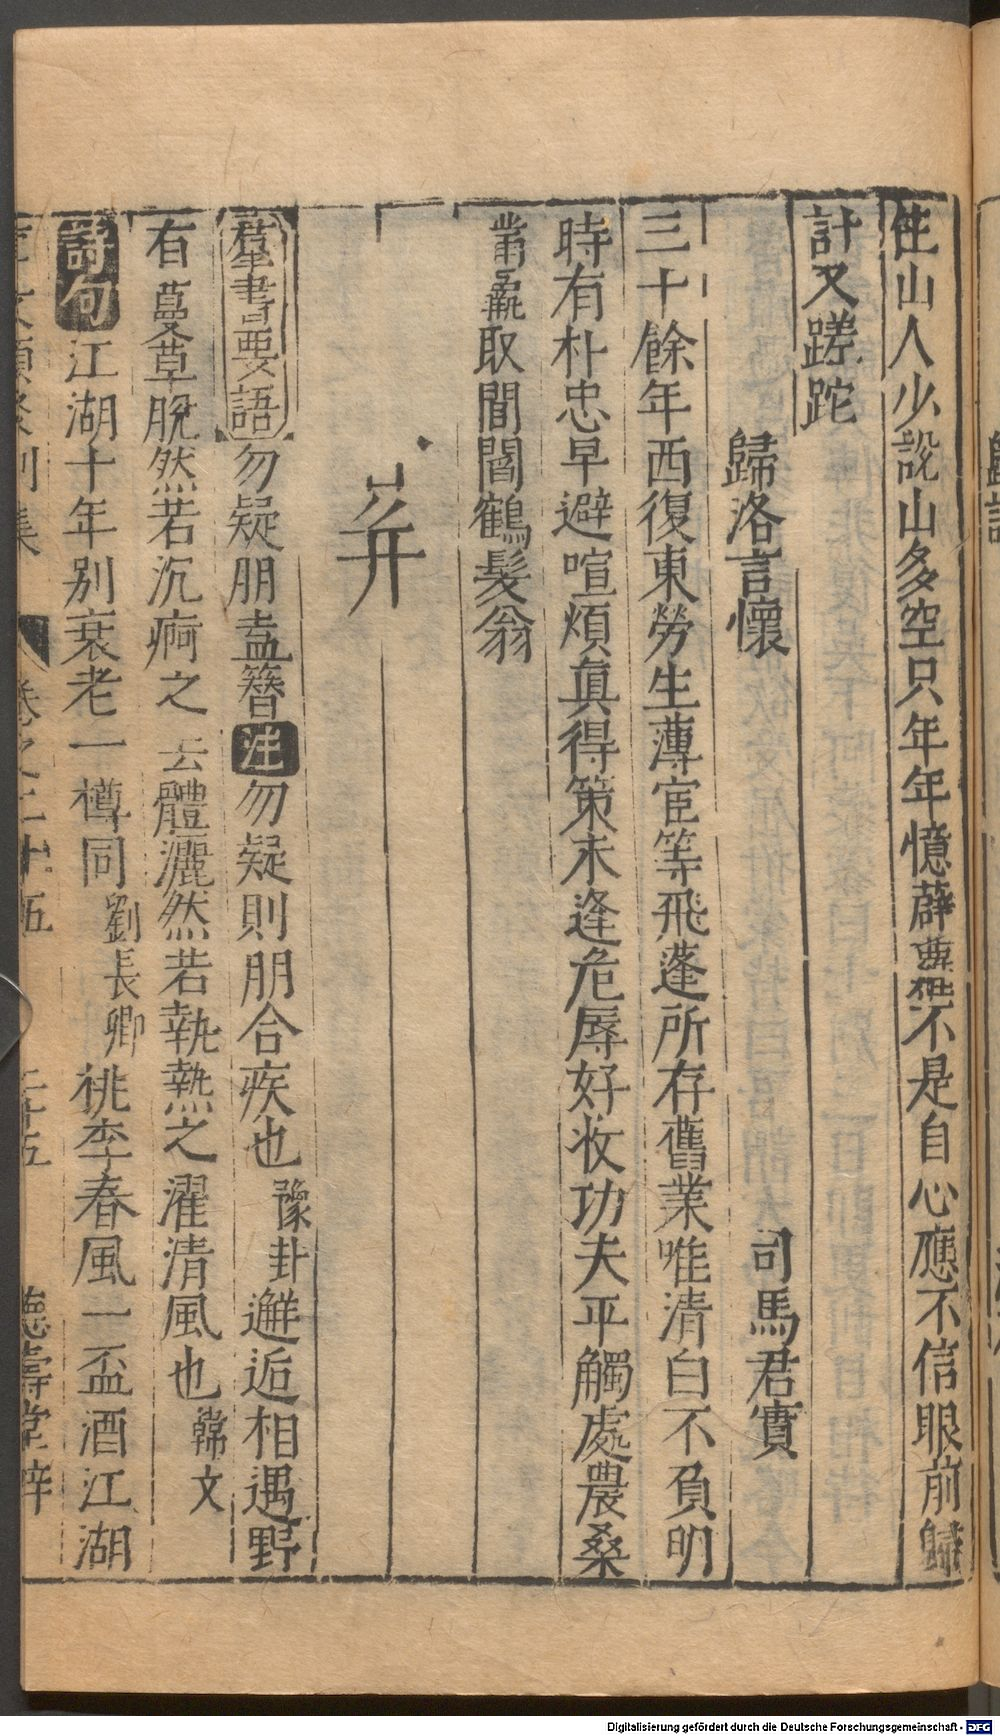 住山人少說山多空只年年憶薜蘿不是自心應不信眼前歸
計又蹉跎
歸洛言懷 司馬君實
三十餘年西復東勞生薄宦等飛蓬所存舊業唯清白不負明
時有朴忠早避喧煩眞得策未逢危辱好收功夫平觸處農桑
滿羸取閭閻鶴髮翁
羣書要語 勿疑朋盍簪 注 勿疑則朋合疾也 豫卦 邂逅相遇野
有蔓草 脫然若沉痾之去體灑然若執熱之濯清風也 韓文
詩句 江湖十年别衰老一樽同 劉長卿 桃李春風一盃酒江湖
卷之三十五 二十五 德壽堂梓
Digitalisierung gefördert durch die Deutsche Forschungsgemeinschaft - DFG